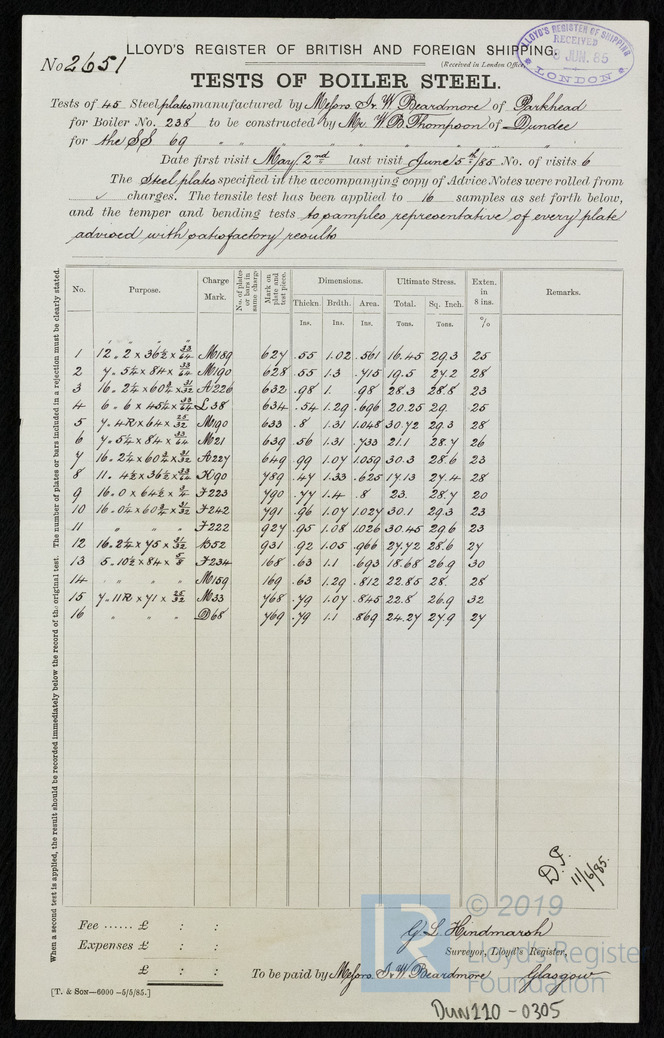 LLOYD'S REGISTER OF BRITISH AND FOREIGN SHIPPING.
LLOYD'S REGISTER OF SHIPPING RECEIVED 8 JUN. 85 LONDON
No 2651
(Received in London Office
TESTS OF BOILER STEEL.
Tests of 45 Steel plates manufactured by Messrs. W. Beardmore of Parkhead
for Boiler No. 238 to be constructed by Mr. W.B. Thompson of Dundee
for the SS 69 " " " " " " "
Date first visit May 2nd last visit June 5th/85 No. of visits 6
The Steel plates specified in the accompanying copy of Advice Notes were rolled from
✓ charges. The tensile test has been applied to 16 samples as set forth below,
and the temper and bending tests to samples representative of every plate
advised with satisfactory results
No. Purpose. Charge Mark. No. of plates or bars in same charge Mark on plate and test piece. Dimensions. Ultimate Stress. Exten. in 8 ins. Remarks.
Thickn. Brdth. Area. Total. Sq. Inch.
Ins. Ins. Ins. Tons. Tons. %
1 12.2 x 36½ x 33/64 M189 627 .55 1.02 .561 16.45 29.3 25
2 7.5¼ x 84 x 33/64 M190 628 .55 1.3 .715 19.5 27.2 28
3 16.2¼ x 60¾ x 31/32 A226 632 .98 1. .98 28.3 28.8 23
4 6.6 x 45¼ x 33/64 L38 634 .54 1.29 .696 20.25 29. 25
5 7.4R x 64 x 25/32 M190 633 .8 1.31 1.048 30.72 29.3 28
6 7.5¼ x 84 x 33/64 M21 639 .56 1.31 .733 21.1 28.7 26
7 16.2¼ x 60¾ x 31/32 A227 649 .99 1.07 1.059 30.3 28.6 23
8 11.4½ x 36½ x 33/64 K190 789 .47 1.33 .625 17.13 27.4 28
9 16.0 x 64½ x ¾ F223 790 .77 1.4 .8 23. 28.7 20
10 16.0¼ x 60¾ x 31/32 F242 791 .96 1.07 1.027 30.1 29.3 23
11 " " " F222 927 .95 1.08 1.026 30.45 29.6 23
12 16.2¼ x 75 x 31/32 B52 931 .92 1.05 .966 27.72 28.6 27
13 5.10½ x 84 x 5/8 F234 168 .63 1.1 .693 18.68 26.9 30
14 " " " M159 169 .63 1.29 .812 22.85 28. 28
15 7.11R x 71 x 25/32 M33 768 .79 1.07 .845 22.8 26.9 32
16 " " " D68 769 .79 1.1 .869 24.27 27.9 27
When a second test is applied, the result should be recorded immediately below the record of the original test. The number of plates or bars included in a rejection must be clearly stated.
11/6/85.
Fee ...... £ : :
Expenses £ : :
£ : :
G L Hindmarsh
Surveyor, Lloyd's Register,
To be paid by Messrs. W. Beardmore Glasgow
[T. & SON—6000 -5/5/85.]
DUN110-0305
© 2019
LR
Lloyd's Register
Foundation